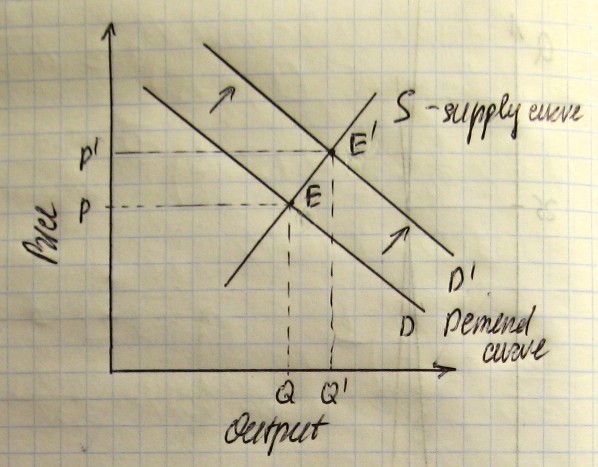 S - supply curve
E'
P'
E
P
Price
D'
D Demend
curve
Q Q'
Output